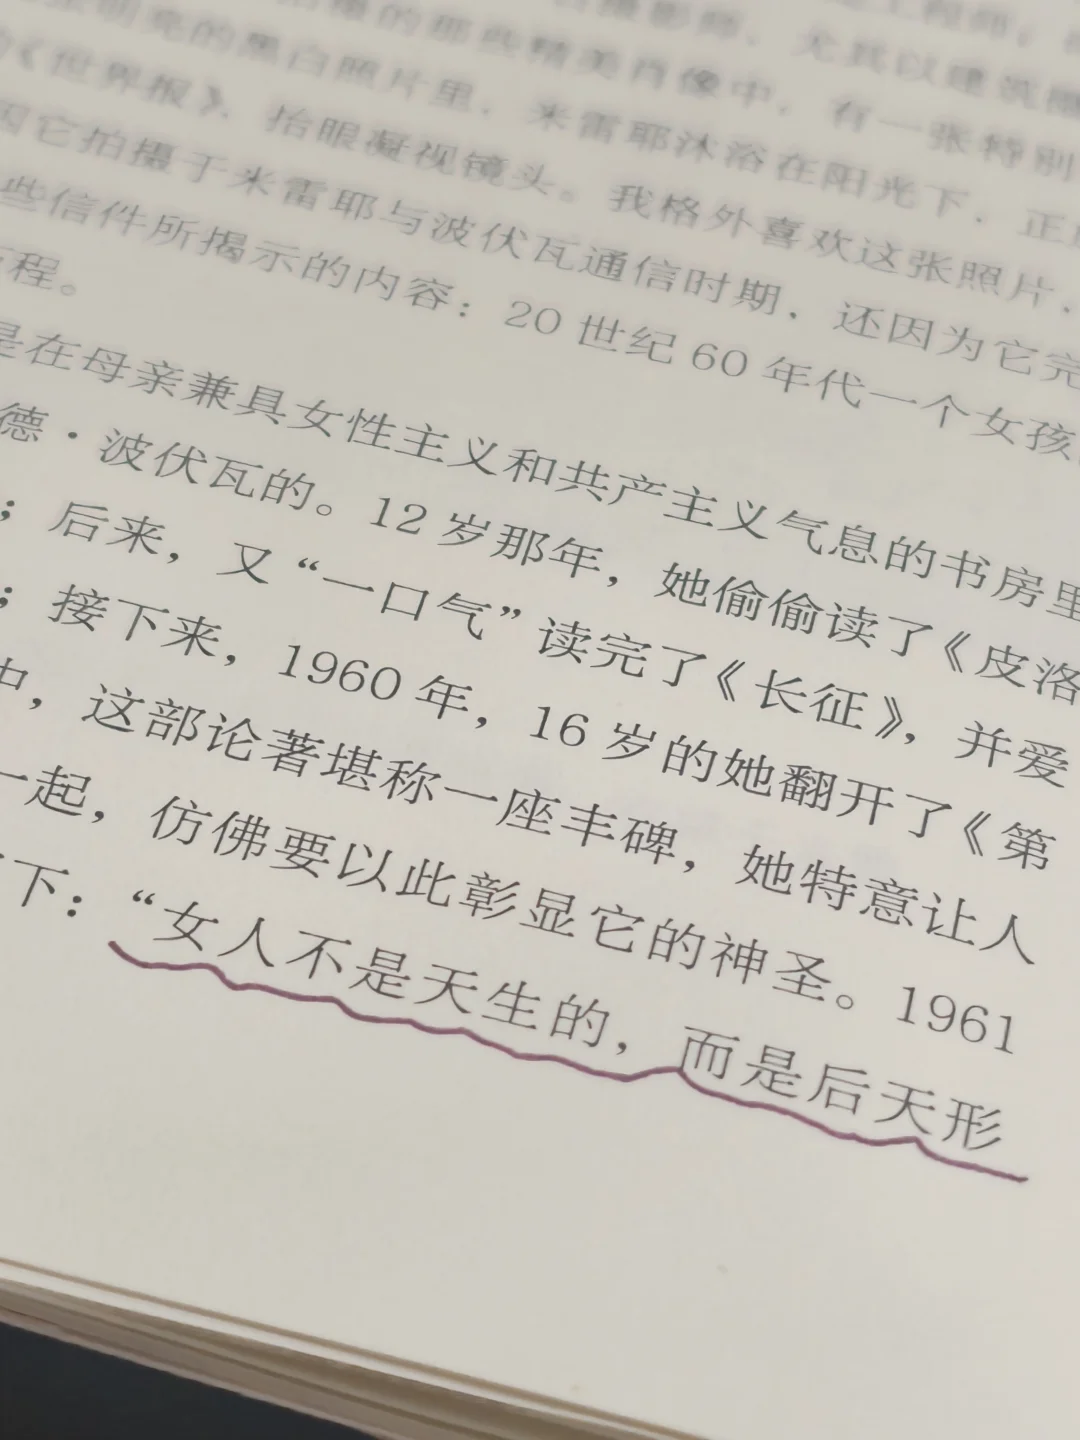 工程师，
的那些精美肖像中，有一张特别
的黑白照片里，米雷耶沐浴在阳光下，正
《世界报》，抬眼凝视镜头。我格外喜欢这张照片，
因它拍摄于米雷耶与波伏瓦通信时期，还因为它完
些信件所揭示的内容：20世纪60年代一个女孩
程。
是在母亲兼具女性主义和共产主义气息的书房里
德·波伏瓦的。12岁那年，她偷偷读了《皮洛
；后来，又“一口气”读完了《长征》，并爱
；接下来，1960年，16岁的她翻开了《第
中，这部论著堪称一座丰碑，她特意让人
一起，仿佛要以此彰显它的神圣。1961
下：“女人不是天生的，而是后天形